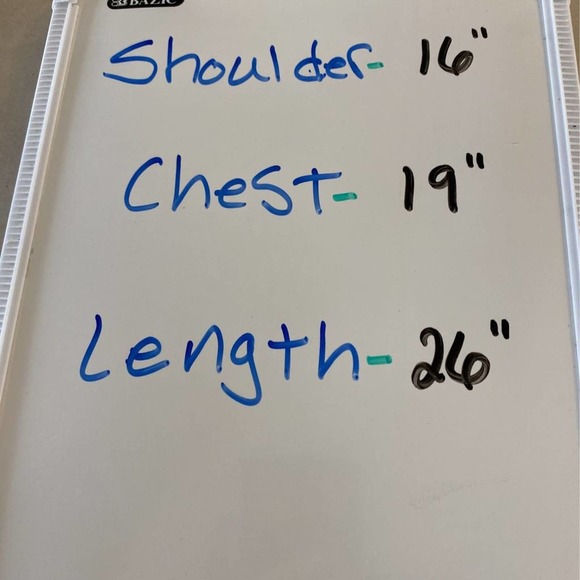 BAZIC
Shoulder- 16"
Chest- 19"
Length- 26"